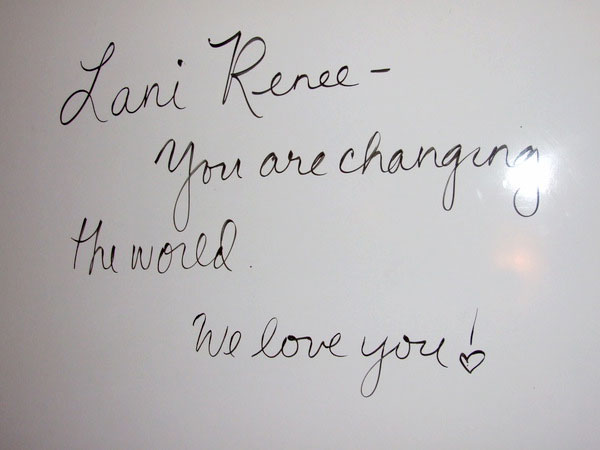 Lani Renee -
You are changing
the world.
We love you!